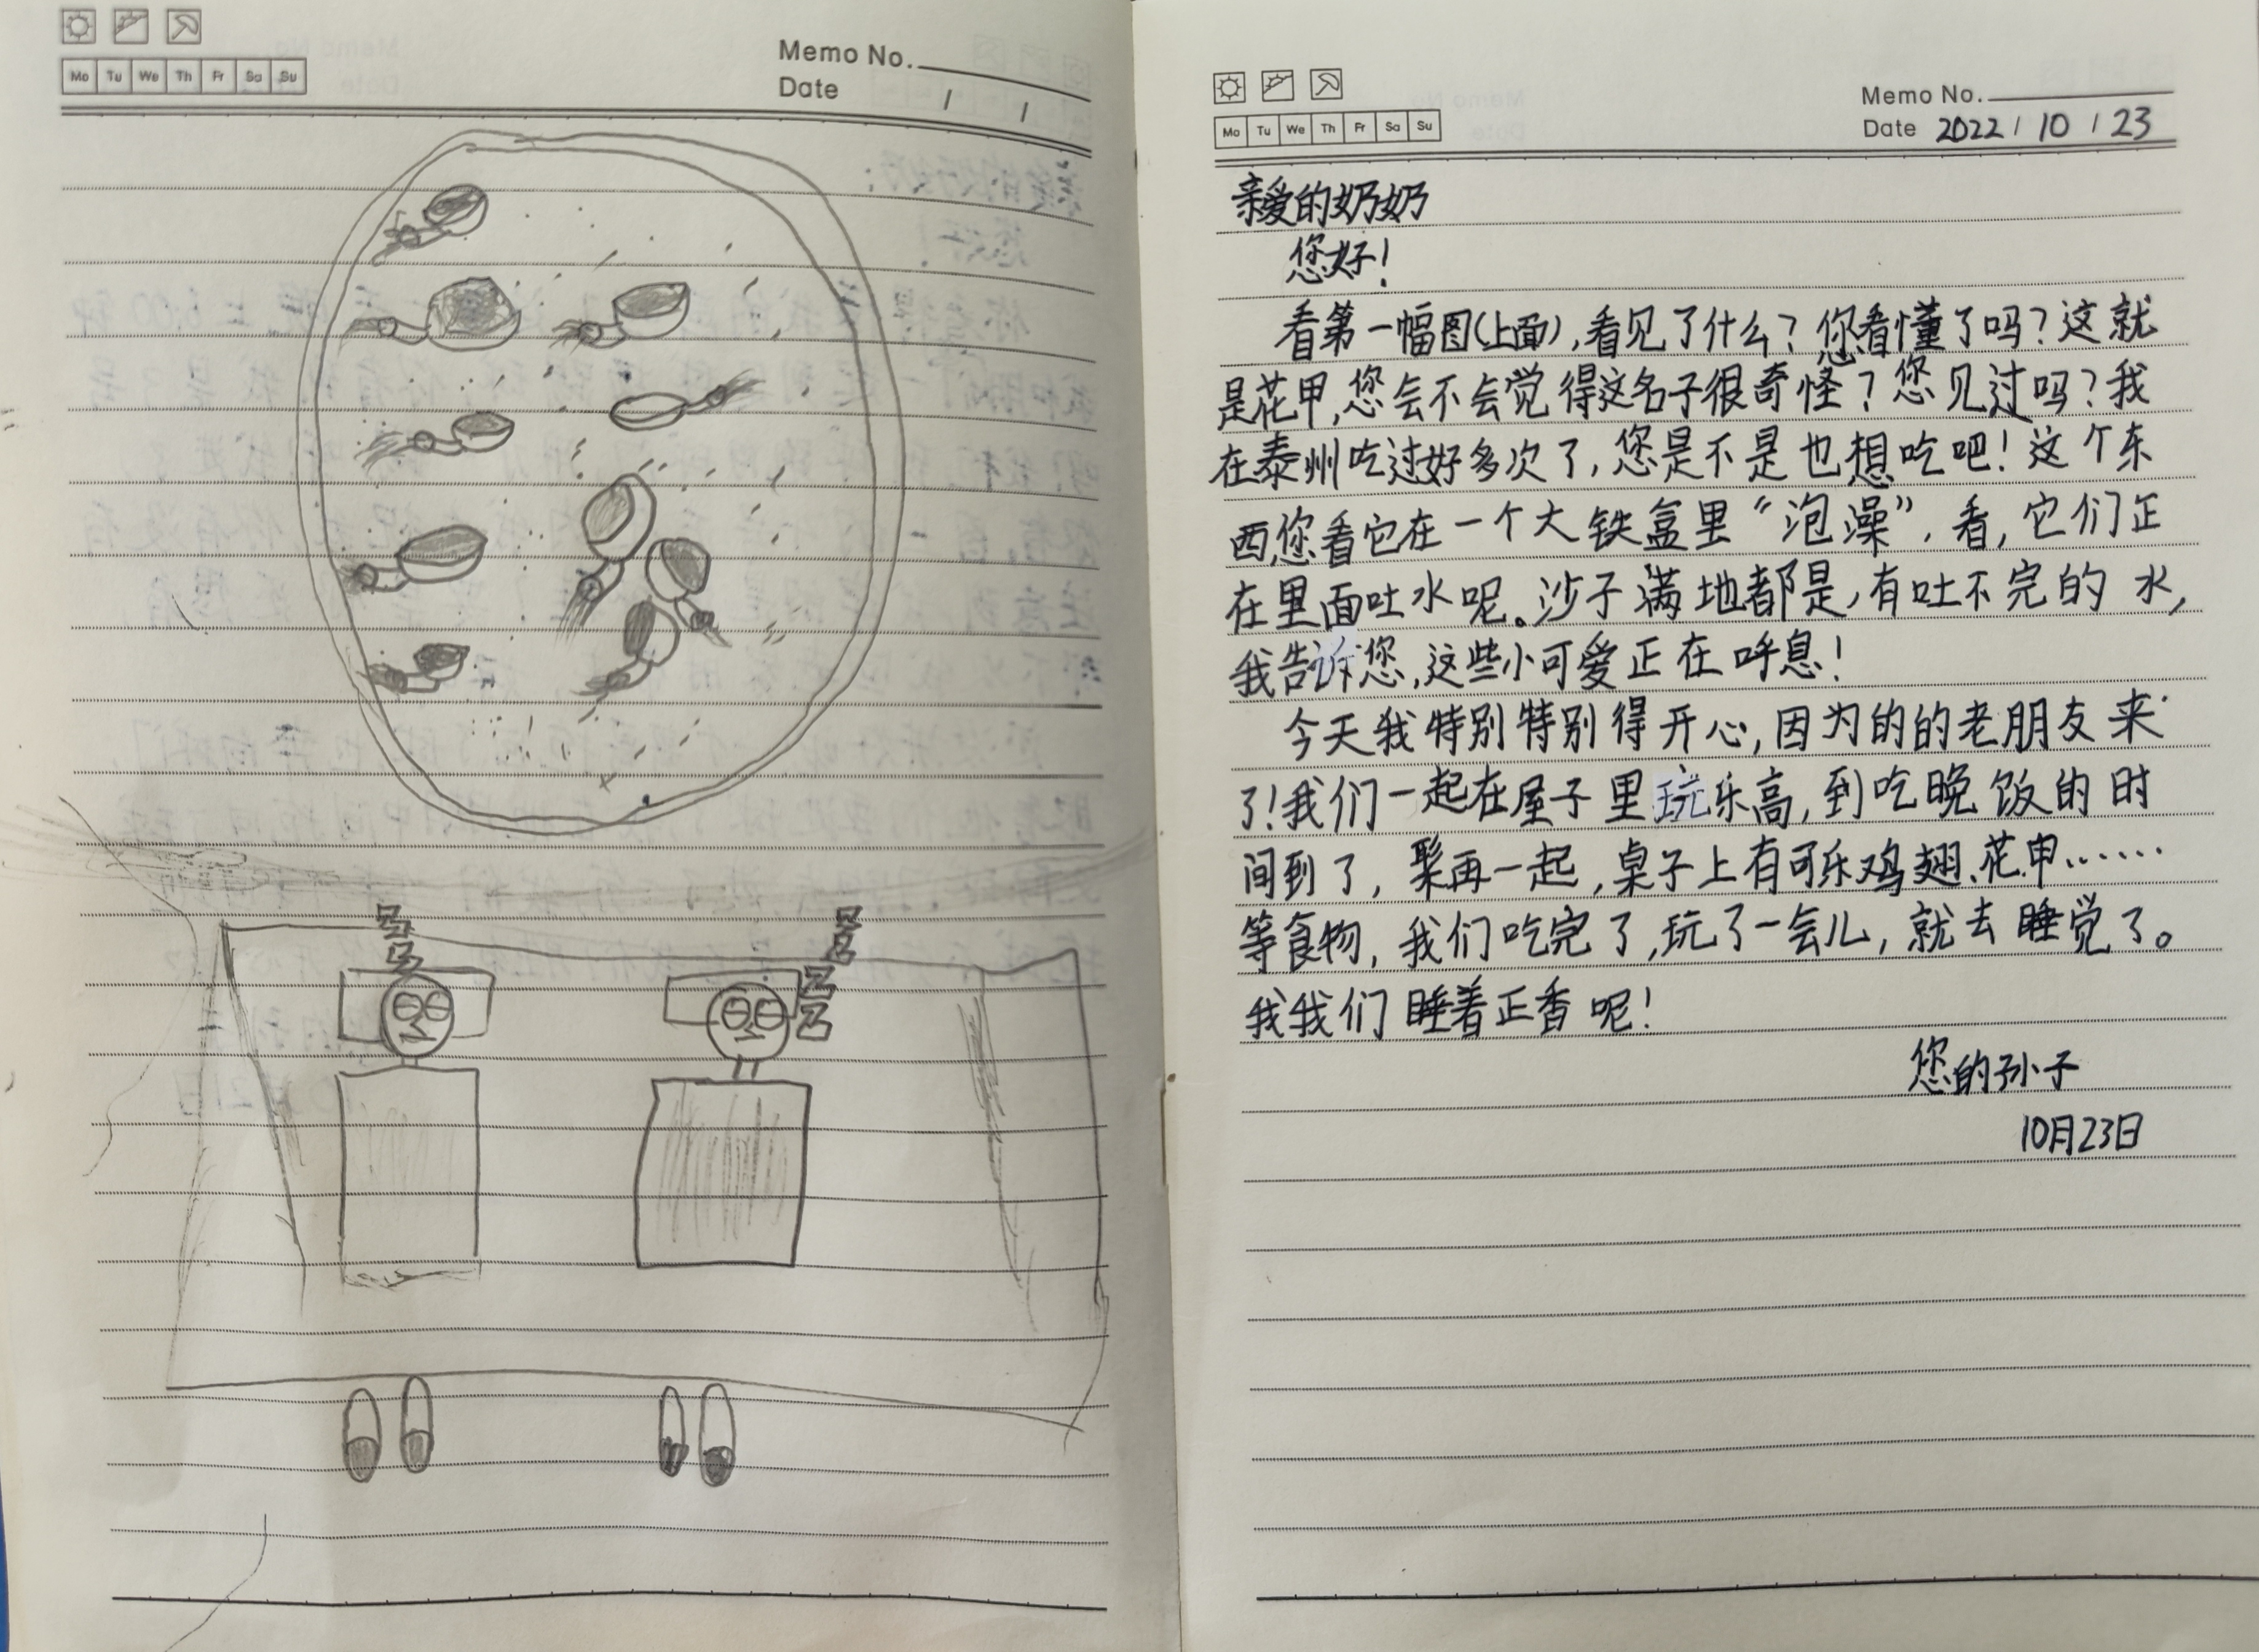 Mo Tu We Th Fr Sa Su
Memo No.
Date / /
Z
Z
Z
Z
Z
Z
Mo Tu We Th Fr Sa Su
Memo No.
Date 2022 / 10 / 23
亲爱的奶奶
您好!
看第一幅图(上面),看见了什么?您看懂了吗?这就
是花甲,您会不会觉得这名子很奇怪?您见过吗?我
在泰州吃过好多次了,您是不是也想吃吧!这个东
西,您看它在一个大铁盒里“泡澡”,看,它们正
在里面吐水呢。沙子满地都是,有吐不完的水,
我告诉您,这些小可爱正在呼息!
今天我特别特别得开心,因为的的老朋友来
了!我们一起在屋子里玩乐高,到吃晚饭的时
间到了,聚再一起,桌子上有可乐鸡翅、花甲……
等食物,我们吃完了,玩了一会儿,就去睡觉了。
我我们睡着正香呢!
您的孙子
10月23日